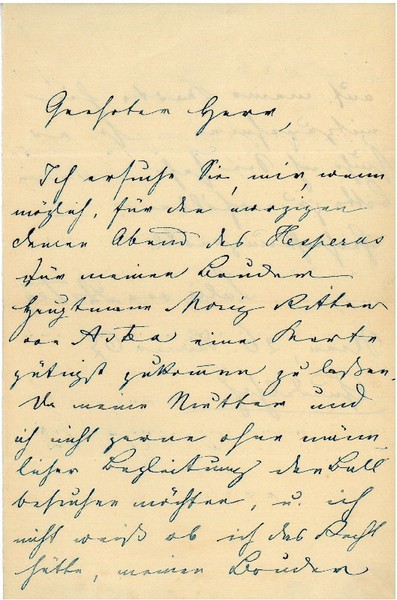 Geehrter Herr,
Ich ersuche Sie, mir, wenn
möglich, für den
Abend des Hesperus
für meinen Bruder
Hauptmann Moriz Ritter
von eine Karte
gütigst zukommen zu laßen.
Da meine Mutter und
ich nicht gerne ohne männ
licher Begleitung den Ball
besuchen möchten, u. ich
nicht weiß ob ich das Recht
hätte, meinen Bruder